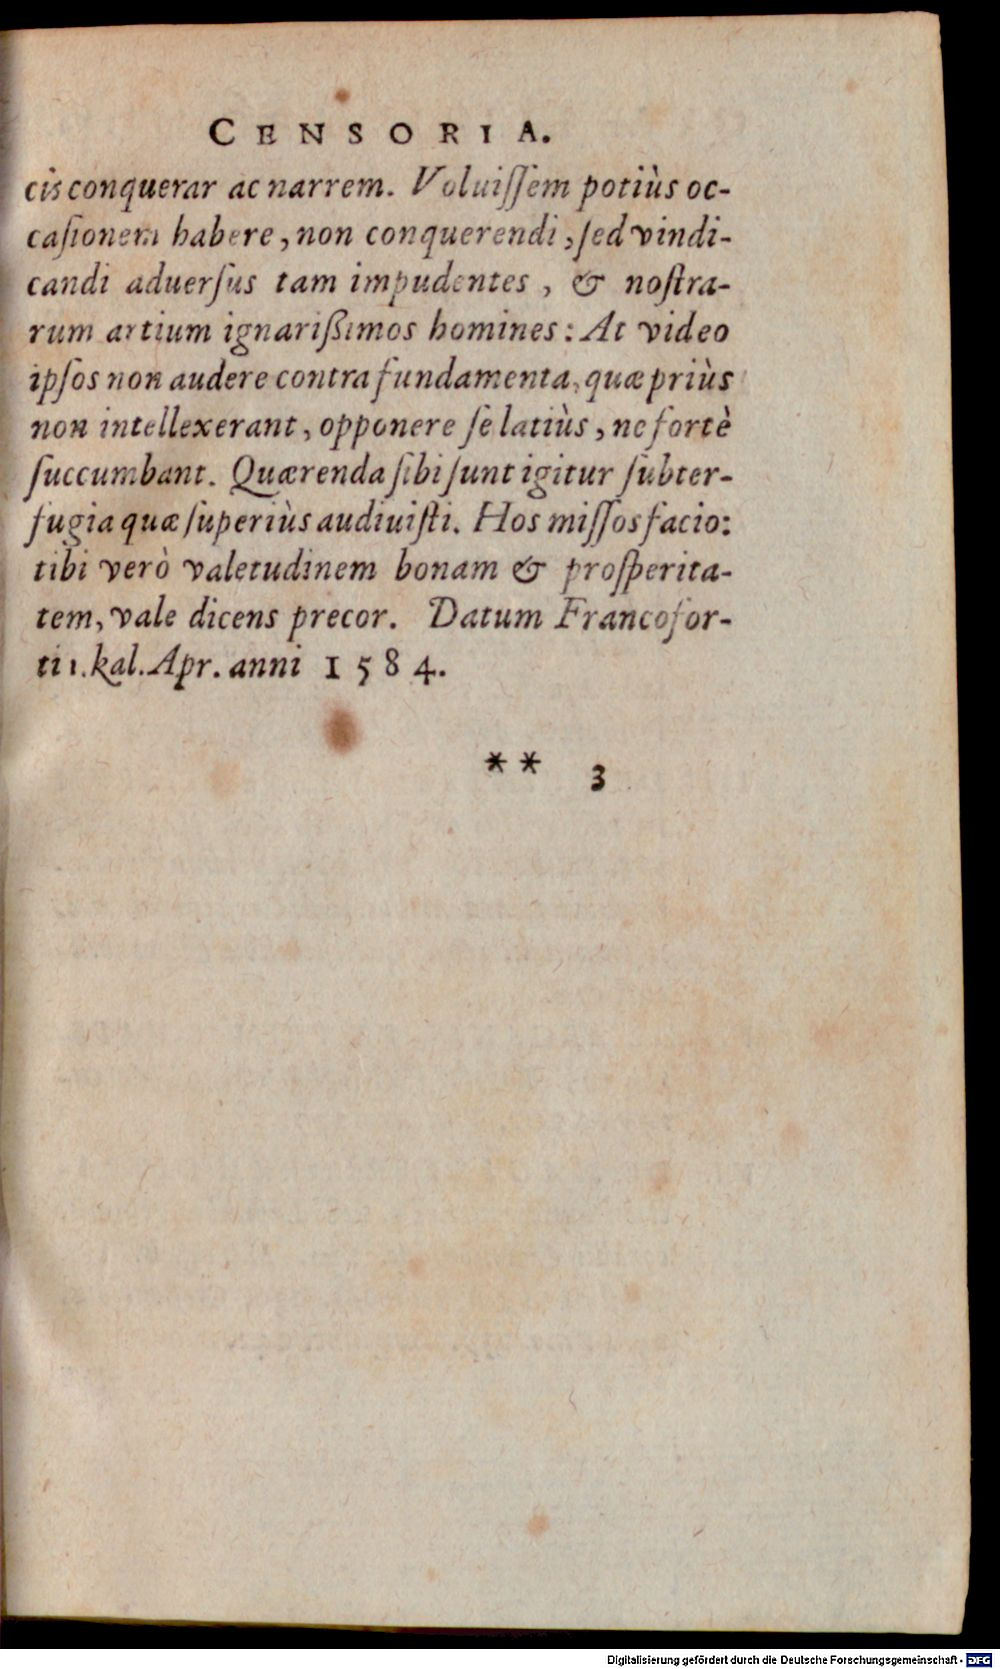 CENSORIA.
cis conquerar ac narrem. Voluiſſem potiùs oc-
caſionem habere, non conquerendi, ſed vindi-
candi aduerſus tam impudentes, & noſtra-
rum artium ignariſsimos homines: At video
ipſos non audere contra fundamenta, quæ priùs
non intellexerant, opponere ſe latiùs, ne fortè
ſuccumbant. Quærenda ſibi ſunt igitur ſubter-
fugia quæ ſuperiùs audiuiſti. Hos miſſos facio:
tibi verò valetudinem bonam & proſperita-
tem, vale dicens precor. Datum Francofor-
ti 1. kal. Apr. anni 1584.
** 3
Digitalisierung gefördert durch die Deutsche Forschungsgemeinschaft - DFG